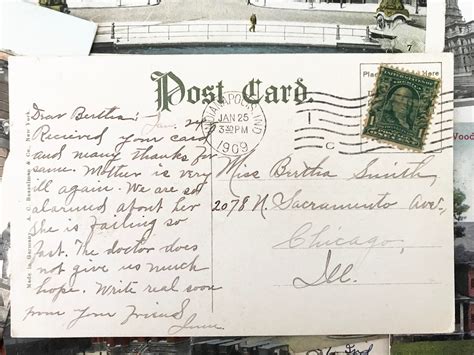 Post Card.
Place
Here
INDIANAPOLIS, IND.
JAN 25
3 30 PM
1909
C
Dear Bertha: Jan. 24
Received your card
and many thanks for
same. Mother is very
ill again. We are so
alarmed about her
She is failing so
fast. The doctor does
not give us much
hope. Write real soon
from your Friend
Miss Bertha Smith,
2078 N. Sacramento Ave.,
Chicago,
Ill.
Made in Germany
New York
Wood
7